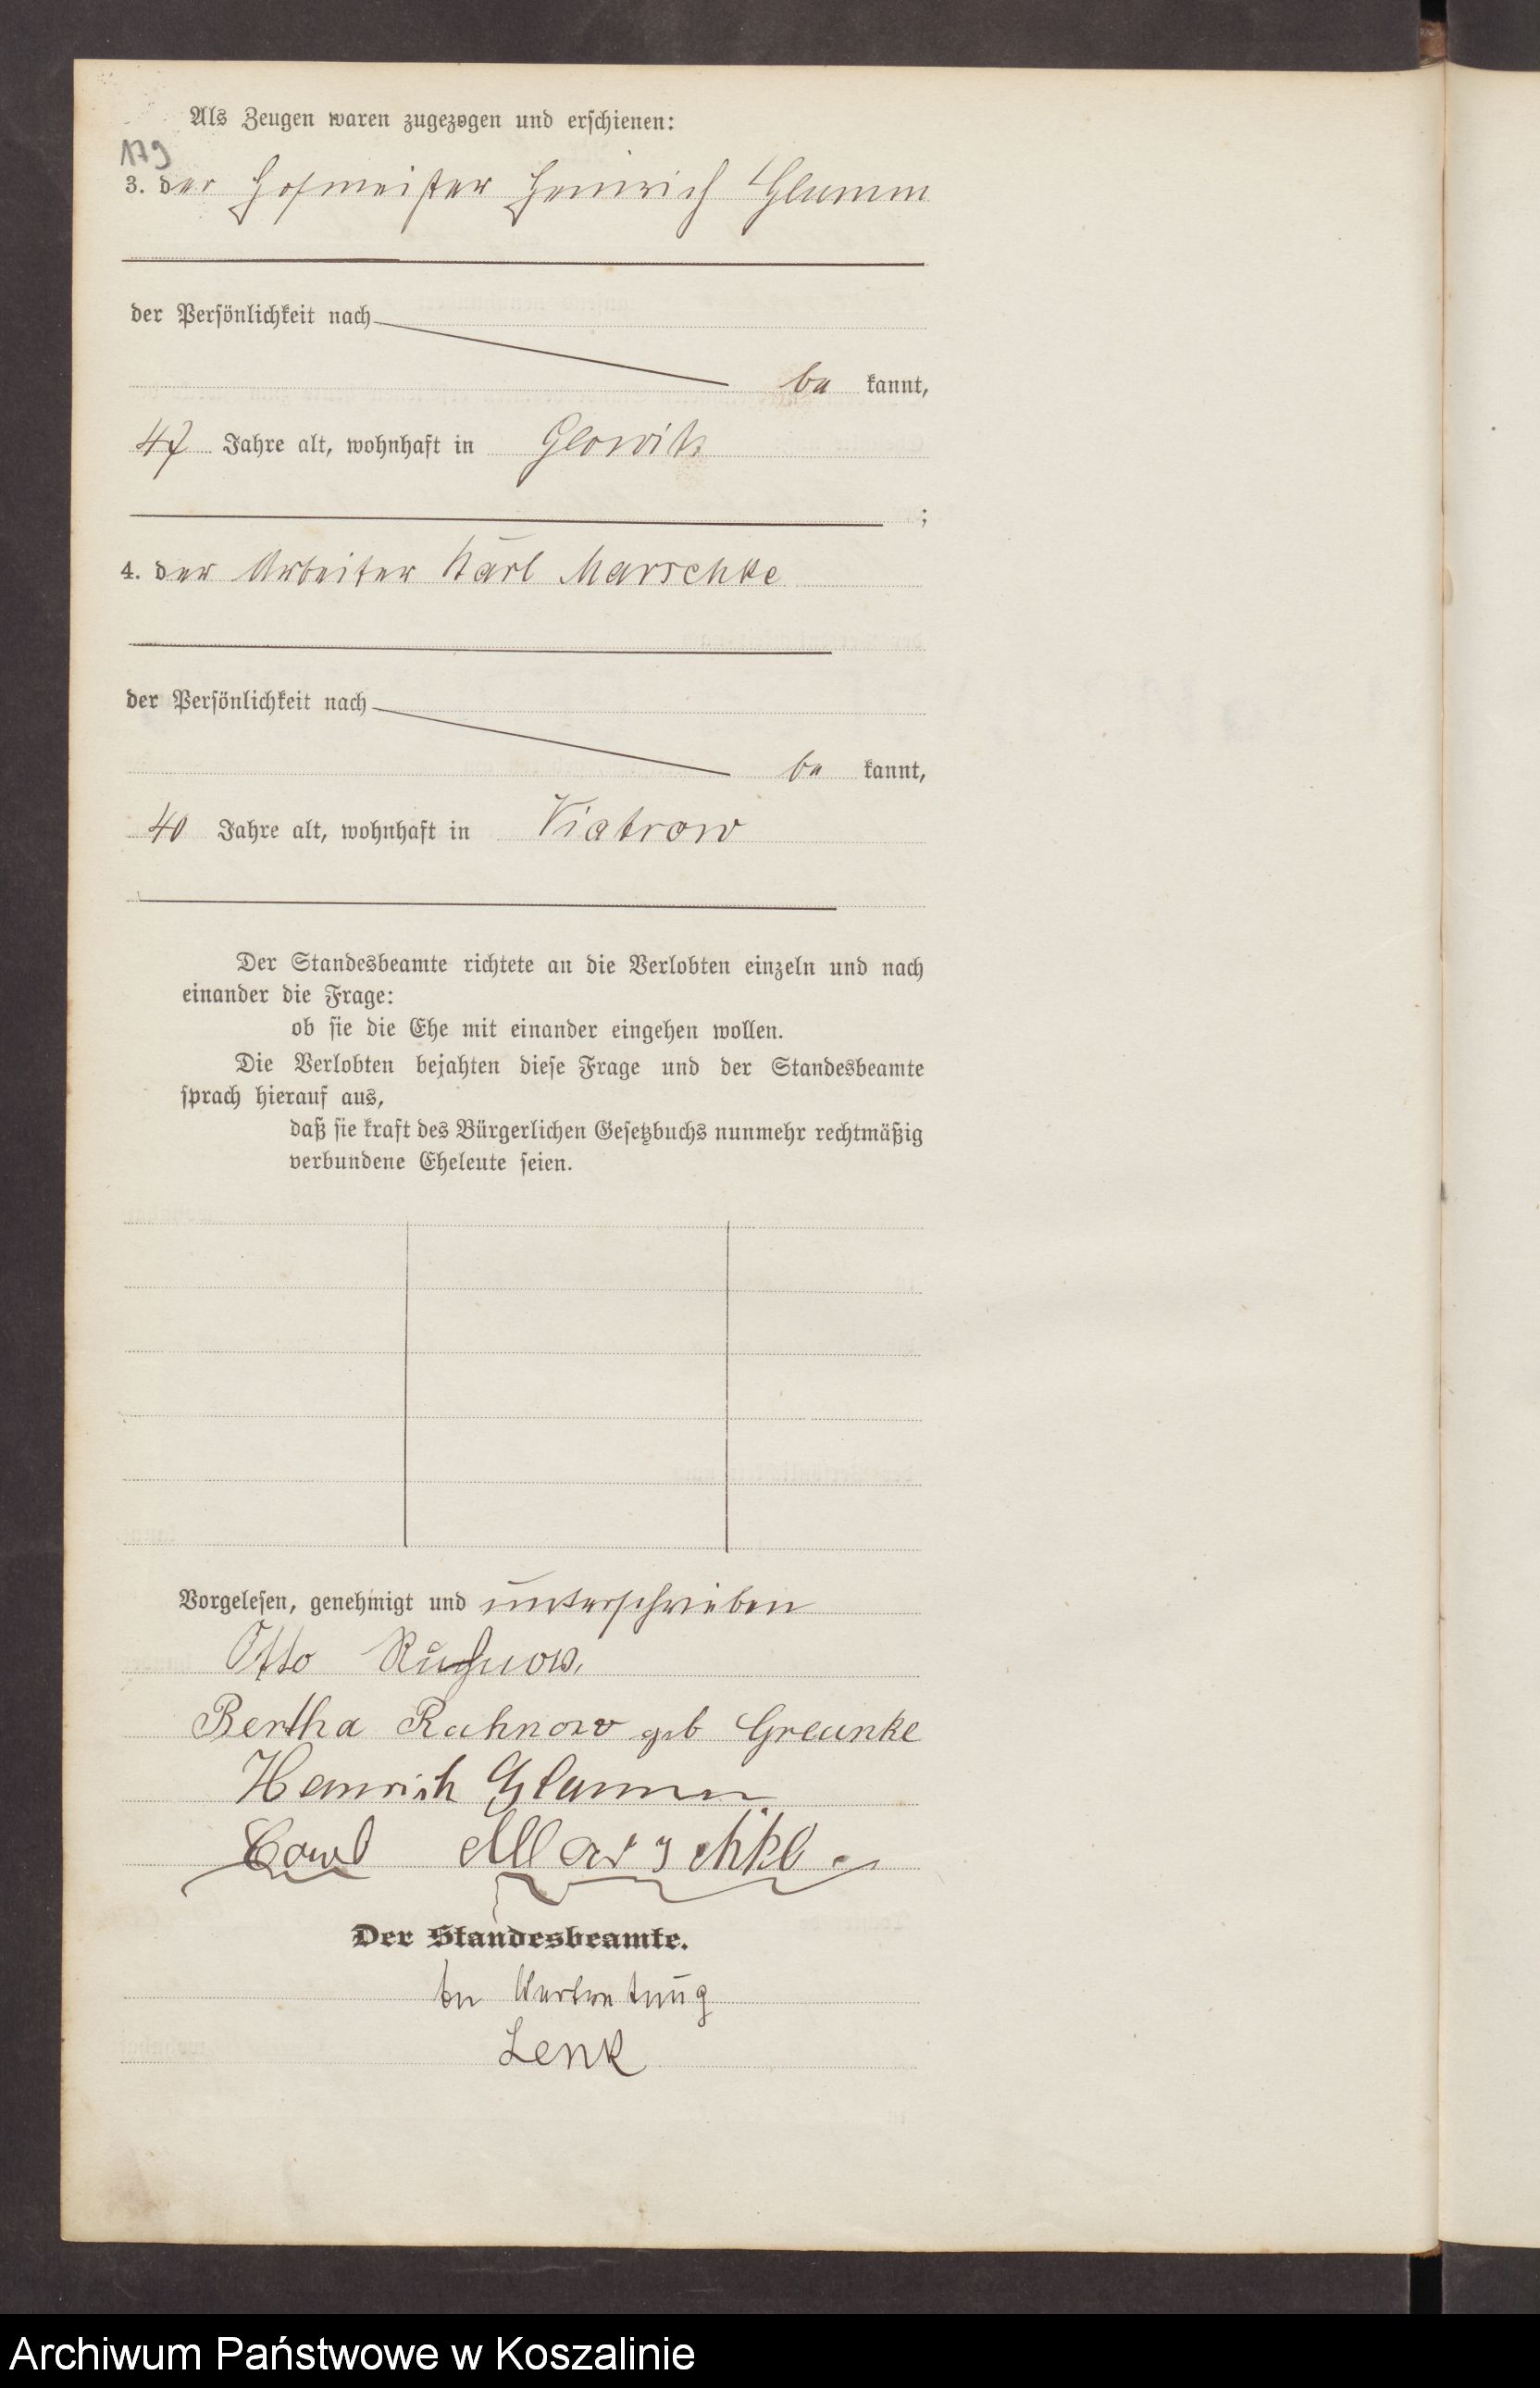 Als Zeugen waren zugezogen und erschienen:
179
3. der Hofmeister Heinrich Glumm
der Persönlichkeit nach
be kannt,
47 Jahre alt, wohnhaft in Glowitz
;
4. der Arbeiter Karl Marschke
der Persönlichkeit nach
be kannt,
40 Jahre alt, wohnhaft in Viatrow
Der Standesbeamte richtete an die Verlobten einzeln und nach
einander die Frage:
ob sie die Ehe mit einander eingehen wollen.
Die Verlobten bejahten diese Frage und der Standesbeamte
sprach hierauf aus,
daß sie kraft des Bürgerlichen Gesetzbuchs nunmehr rechtmäßig
verbundene Eheleute seien.
Vorgelesen, genehmigt und unterschrieben
Otto Ruhnow.
Bertha Ruhnow geb Greunke
Heinrich Glumm
Carl Marschke
Der Standesbeamte.
In Vertretung
Lenk
Archiwum Państwowe w Koszalinie